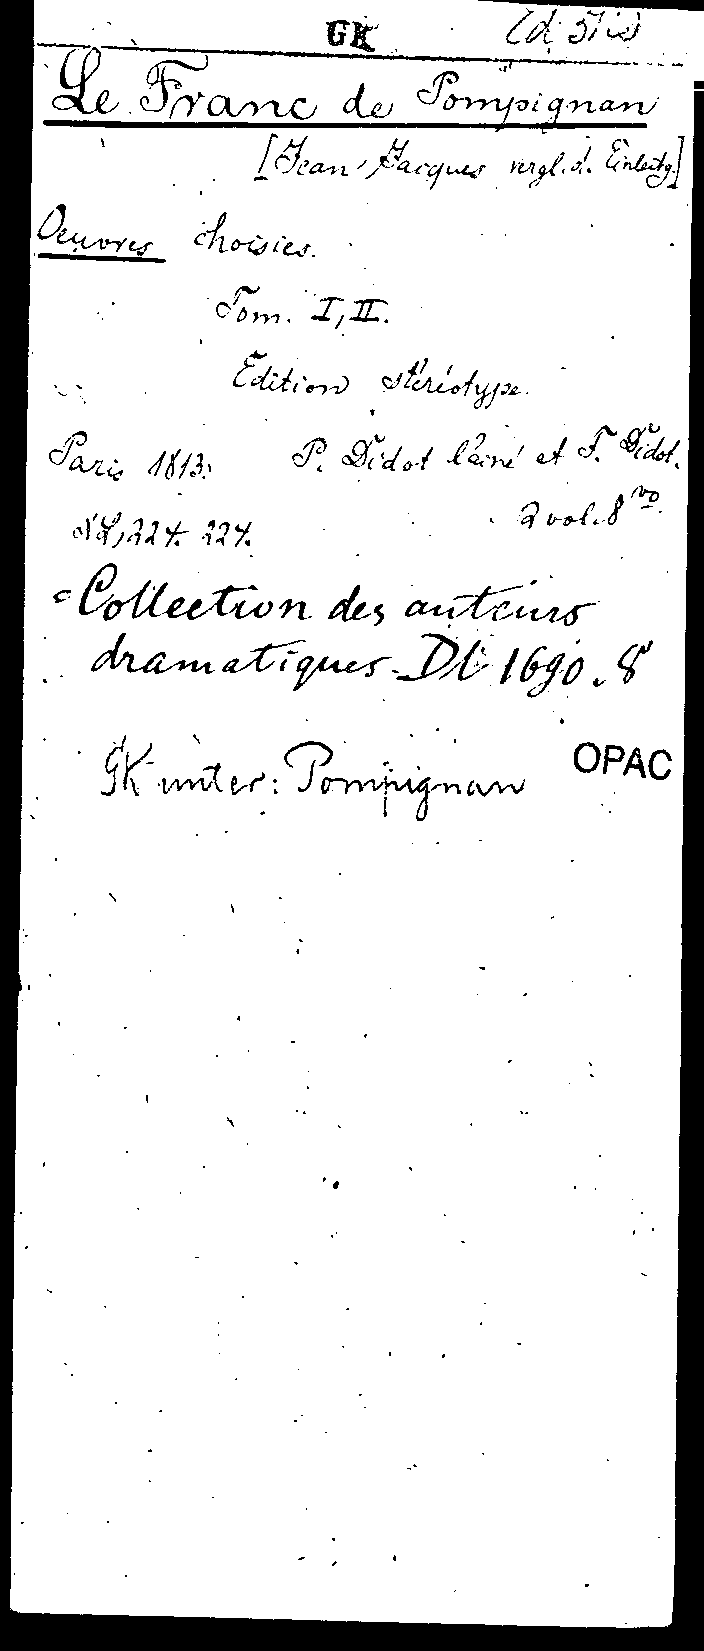 GK
Le Franc de Pompignan
[Jean-Jacques vergl. d. Einleitg.]
Oeuvres choisies.
Tom. I, II.
Edition stéréotype.
Paris 1813. P. Didot l'ainé et F. Didot.
2 vol. 8vo.
224. 224.
= Collection des auteurs
dramatiques - Dl 1690. 8
OPAC
GK unter: Pompignan